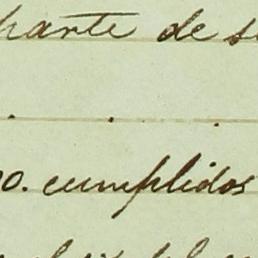 parte de s
o. cumplidos